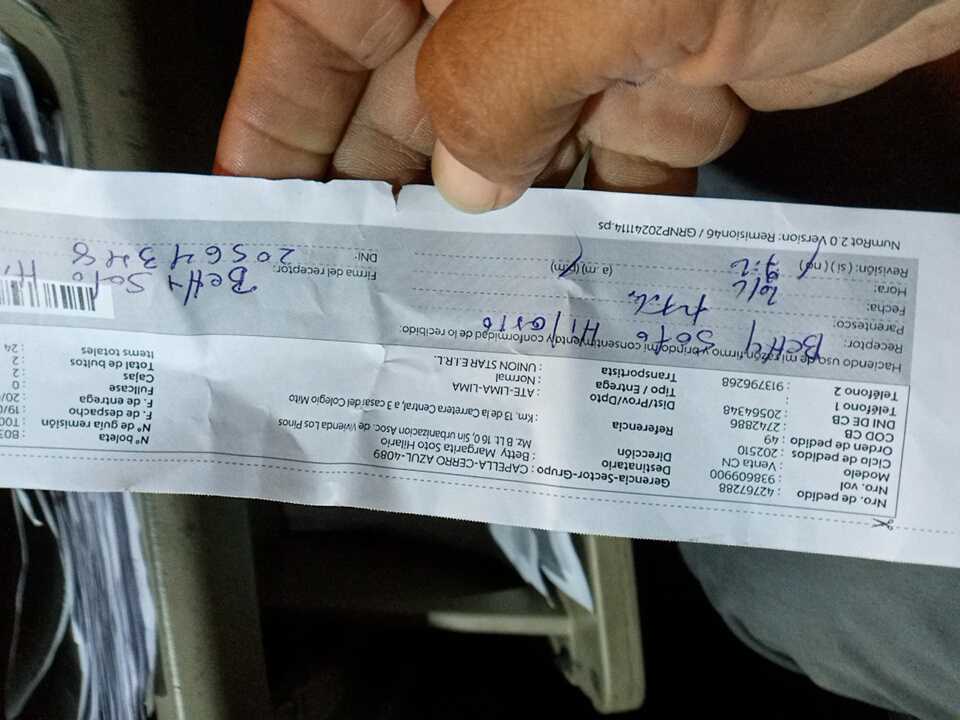 Nro. de pedido : 42767288
Nro. vol : 938609900
Modelo : Venta CN
Ciclo de pedidos : 202510
Orden de pedido : 49
COD CB : 2742886
DNI DE CB : 20564348
Teléfono 1 :
Teléfono 2 : 913796268
Gerencia-Sector-Grupo : CAPELLA-CERRO AZUL-4089
Destinatario : Betty Margarita Soto Hilario
Dirección : Mz. B Lt. 16, Sin urbanizacion Asoc. de Vivienda Los Pinos
Referencia : Km. 13 de la Carretera Central, a 3 casas del Colegio Mito
Dist/Prov/Dpto : ATE-LIMA-LIMA
Tipo / Entrega : Normal
Transportista : UNION STAR E.I.R.L.
N° boleta : B03
N° de guía de remisión : T00
F. de despacho : 19/0
F. de entrega : 20/0
Fullcase : 0
Cajas : 2
Total de bultos : 2
Items totales : 24
Haciendo uso de mi razón firmo y brindo mi consentimiento y conformidad de lo recibido:
Receptor: Betty Soto
Parentesco:
Fecha:
Hora: (a .m) (pm)
Revisión: (si) (no)
Firma del receptor: Betty Soto H.
DNI: 20564348
NumRot 2.0 Version: Remision46 / GRNP20241114.ps